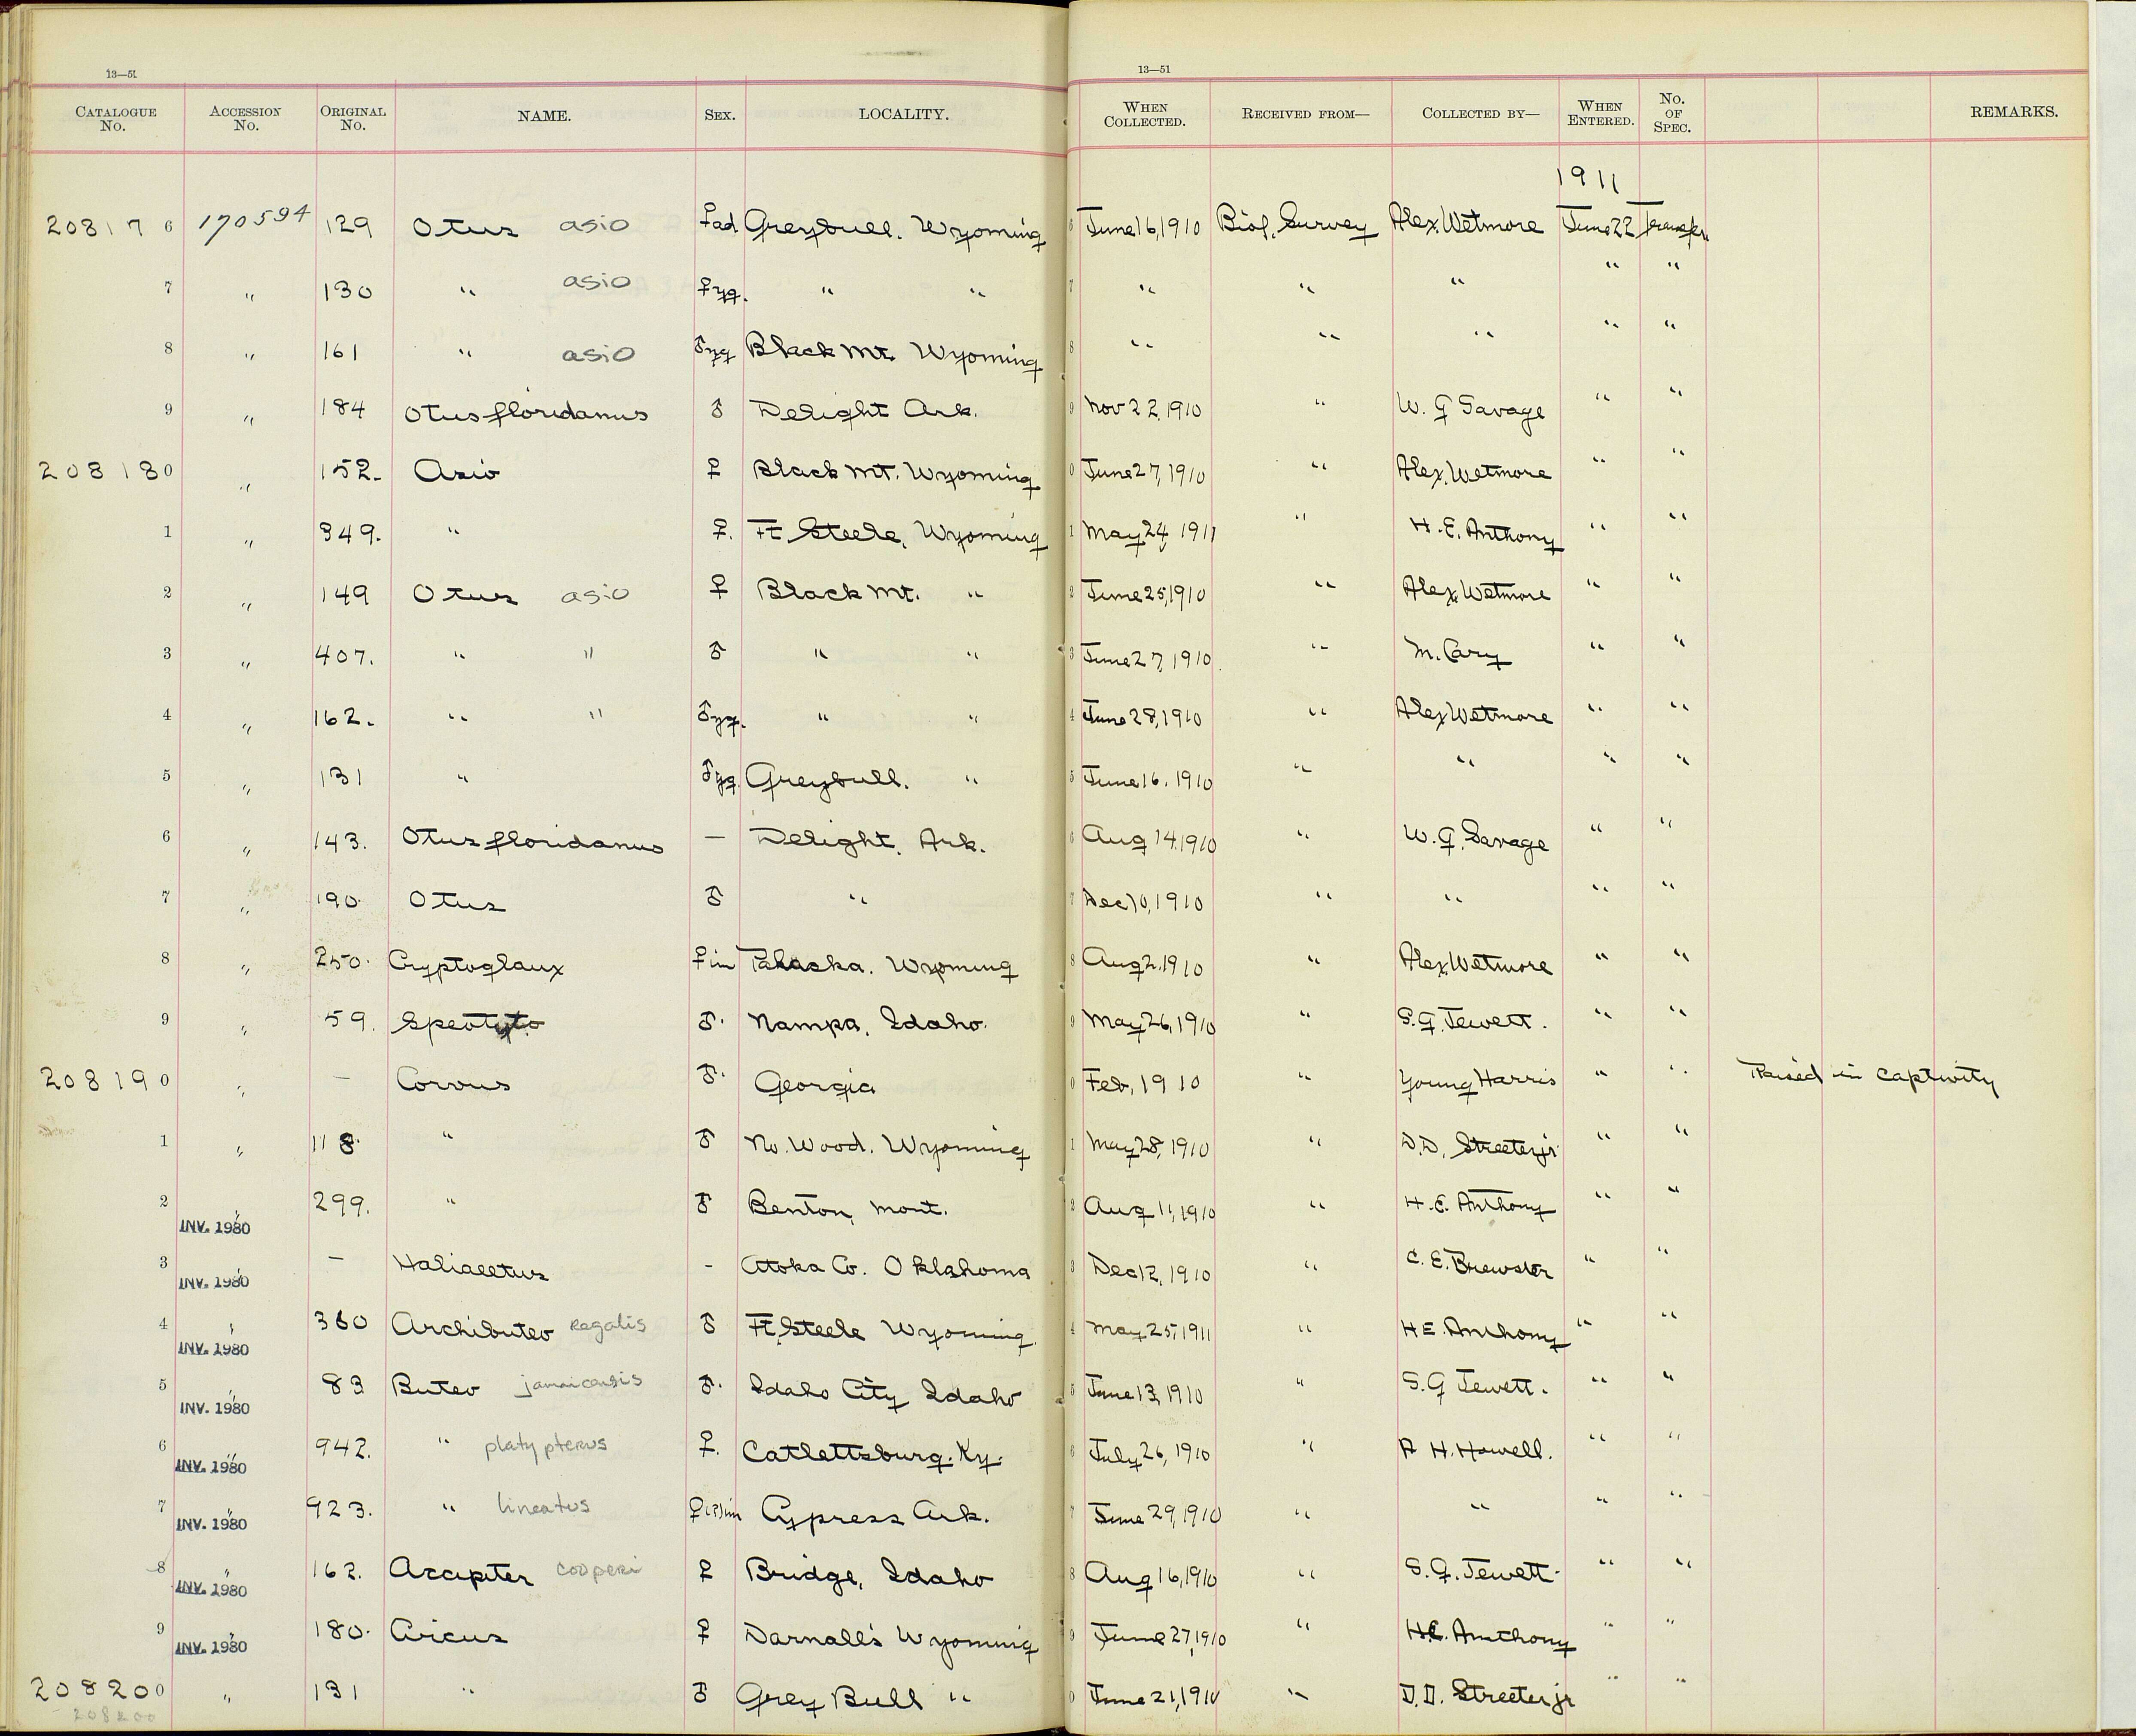 13—51 13—51
CATALOGUE No. ACCESSION No. ORIGINAL No. NAME. SEX. LOCALITY. WHEN COLLECTED. RECEIVED FROM— COLLECTED BY— WHEN ENTERED. No. OF SPEC. REMARKS.
1911
208176 170594 129 Otus asio ♀ad Greybull. Wyoming 6 June 16, 1910 Biol. Survey Alex. Wetmore June 22 Transfer
7 " 130 " asio ♀yg. " " 7 " " " " "
8 " 161 " asio ♂yg Black Mt. Wyoming 8 " " " " "
9 " 184 Otus floridanus ♂ Delight Ark. 9 Nov 22, 1910 " W. G Savage " "
208180 " 152. Asio ♀ Black Mt. Wyoming 0 June 27, 1910 " Alex. Wetmore " "
1 " 349. " ♀. Ft Steele, Wyoming 1 May 24, 1911 " H. E. Anthony " "
2 " 149 Otus asio ♀ Black Mt. " 2 June 25, 1910 " Alex. Wetmore " "
3 " 407. " " ♂ " " 3 June 27, 1910. " M. Cary " "
4 " 162. " " ♂yg. " " 4 June 28, 1910 " Alex Wetmore " "
5 " 131 " ♂yg. Greybull. " 5 June 16. 1910 " " " "
6 " 143. Otus floridanus — Delight. Ark. 6 Aug 14, 1910 " W. G. Savage " "
7 " 190. Otus ♂ " 7 Dec 10, 1910 " " " "
8 " 250. Cryptoglaux ♀im Pahaska. Wyoming 8 Aug 2, 1910 " Alex Wetmore " "
9 " 59. Speotyto ♂. Nampa, Idaho. 9 May 26, 1910 " S. G. Jewett. " "
208190 " — Corvus ♂. Georgia 0 Feb, 1910 " Young Harris " " Raised in captivity
1 " 118. " ♂ No. Wood. Wyoming 1 May 28, 1910 " D. D. Streeter jr. " "
2 " INV. 1980 299. " ♂ Benton, Mont. 2 Aug 11, 1910 " H. E. Anthony " "
3 " INV. 1980 — Haliaeetus - Atoka Co. Oklahoma 3 Dec 12, 1910 " C. E. Brewster " "
4 " INV. 1980 360 Archibuteo regalis ♂ Ft. Steele Wyoming. 4 May 25, 1911 " H E. Anthony " "
5 " INV. 1980 83 Buteo jamaicensis ♂. Idaho City Idaho 5 June 13, 1910 " S. G Jewett. " "
6 " INV. 1980 942. " platypterus ♀. Catlettsburg. Ky. 6 July 26, 1910 " A H. Howell. " "
7 " INV. 1980 923. " lineatus ♀(?)im Cypress Ark. 7 June 29, 1910 " " " "
8 " INV. 1980 162. Accipiter cooperi ♀ Bridge, Idaho 8 Aug 16, 1910 " S. G. Jewett. " "
9 " INV. 1980 180. Circus ♀ Darnall's Wyoming 9 June 27, 1910 " H. E. Anthony " "
208200 " 131 " ♂ Grey Bull " 0 June 21, 1910 " D. D. Streeter jr " "
208200